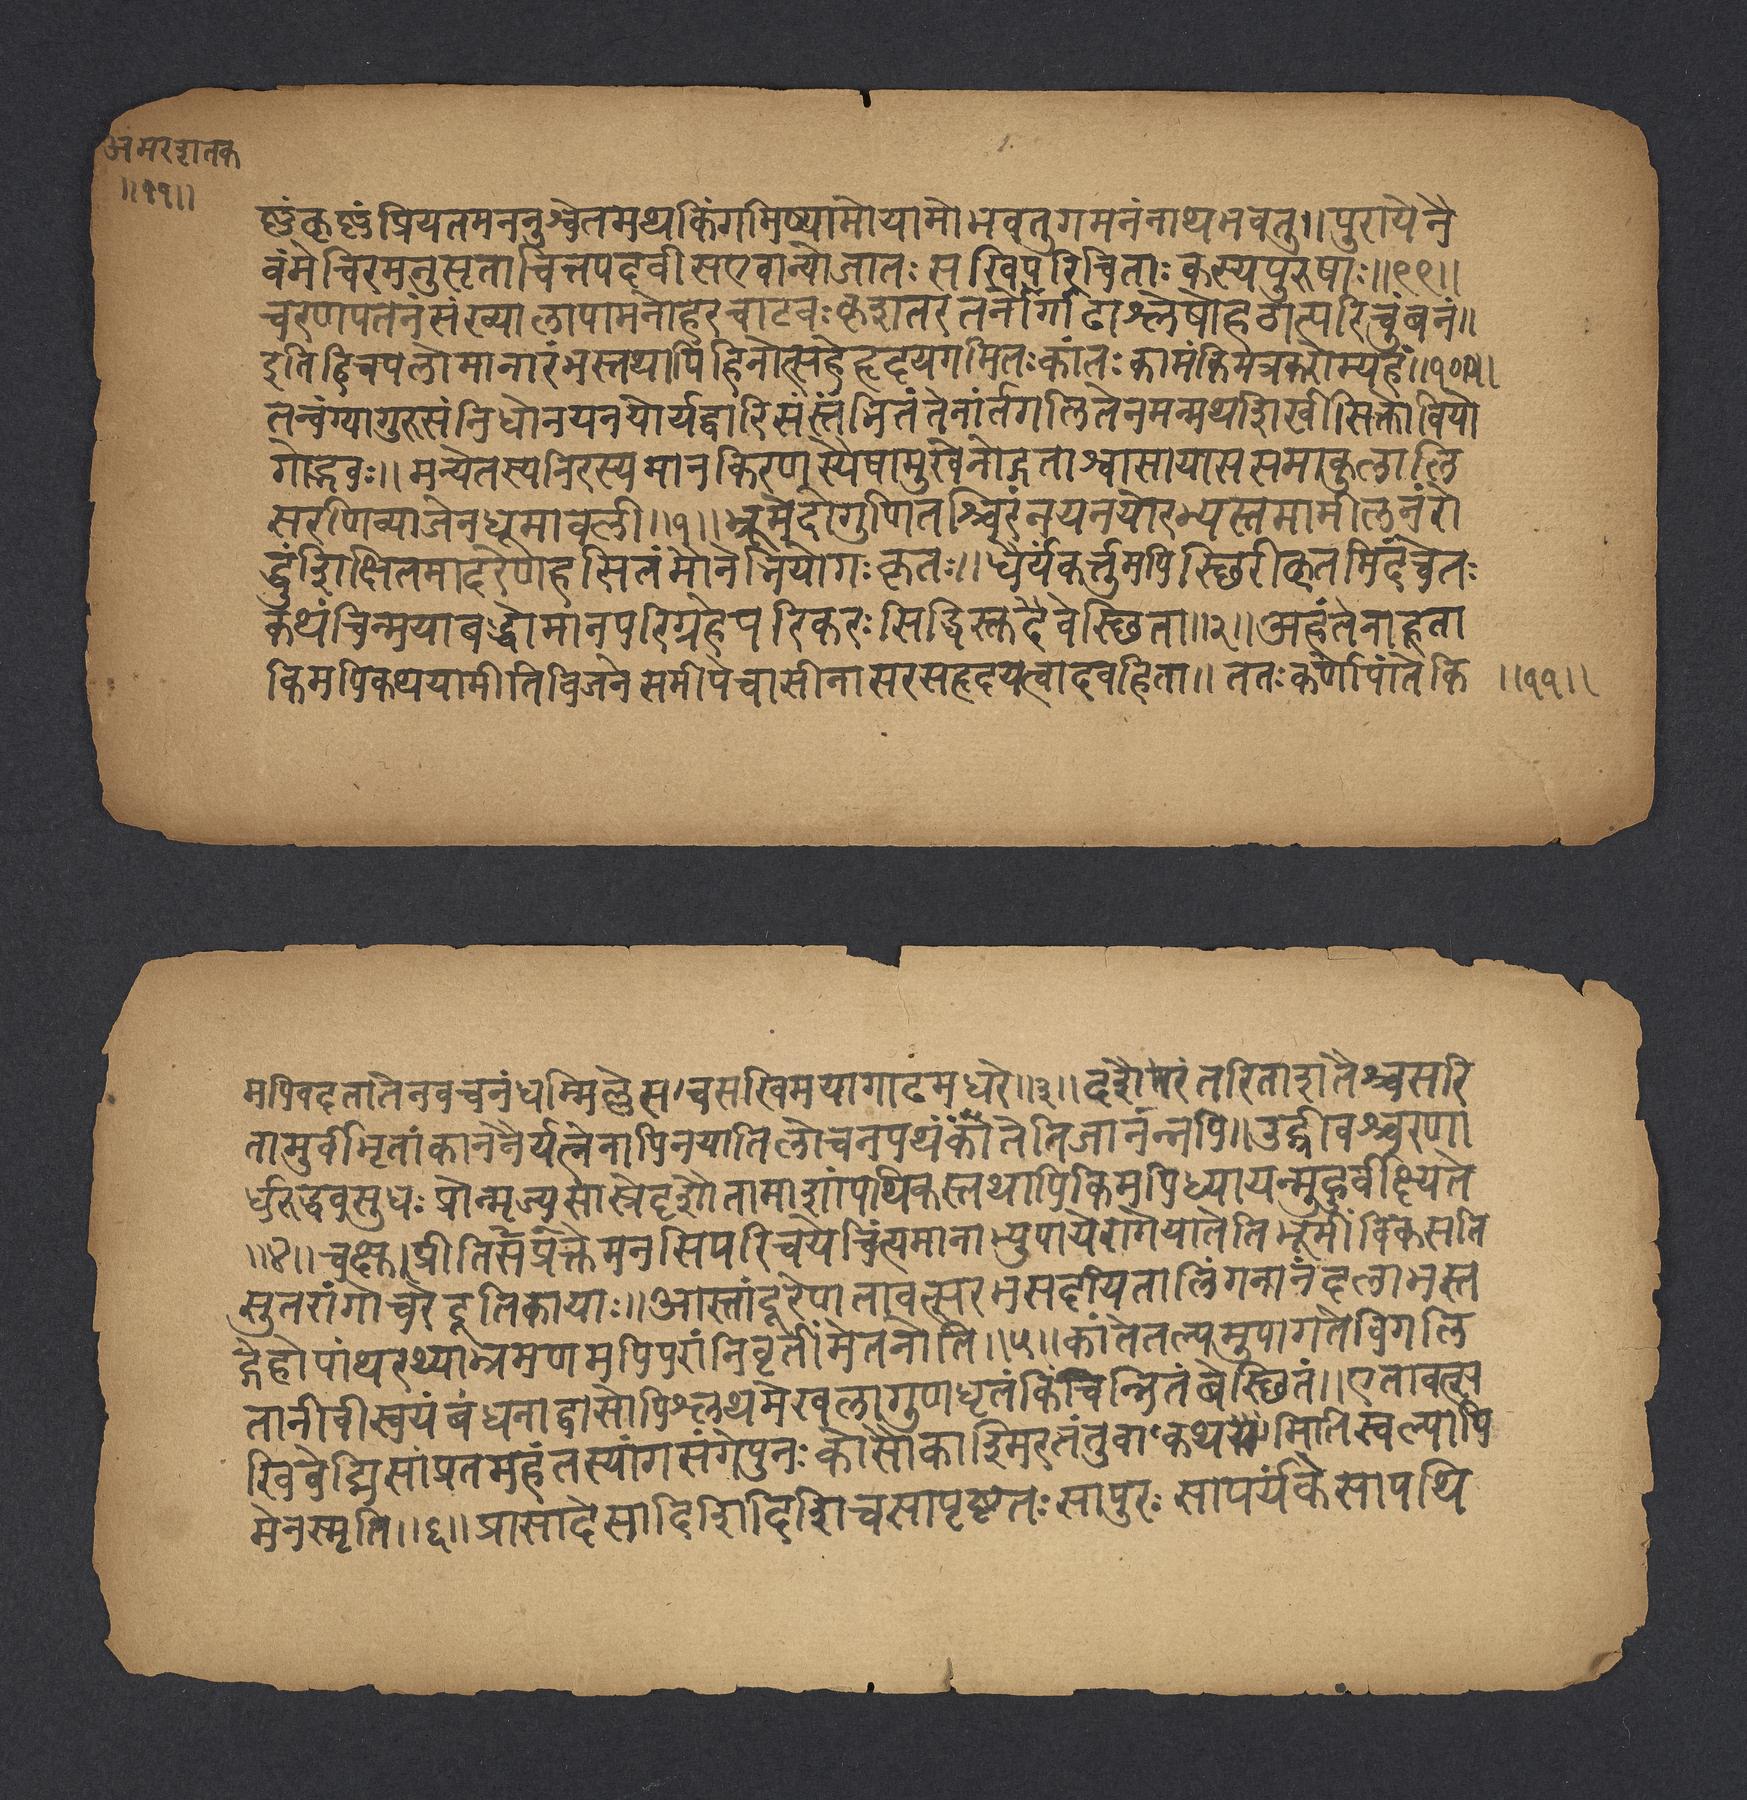 अमरशतक
॥११॥
ष्णंकृष्णंप्रियतमननुश्चेतमथकिंगमिष्यामोयामोभवतुगमनंनाथभवतु॥पुरायेनै
वंमेचिरमनुसृताचित्तपदवीसएवान्योजातःसखिपरिचिताःकस्यपुरुषाः॥९९॥
चरणपतनंसंख्यालापामनोहरचाटवःकृशतरतनोर्गाढाश्लेषोहठात्परिचुंबनं॥
इतिहिचपलोमानारंभस्तथापिहिनोत्सहेहृदयगमितःकांतःकामंकिमत्रकरोम्यहं॥१००॥
तन्वंग्यागुरुसंनिधौनयनयोर्यद्वारिसंस्तंभितंतेनांर्तगलितेनमन्मथशिखीसिक्तोवियो
गोद्भवः॥मन्येतस्यनिरस्यमानकिरणस्यैषामुखेनोद्गताश्वासायाससमाकुलालि
सरणिव्याजेनधूमावली॥१॥भ्रूमेदोगुणितश्चिरंनयनयोरभ्यस्तमामीलनंरो
द्धुंशिक्षितमादरेणहसितंमौनेभियोगःकृतः॥धैर्यंकर्त्तुमपिस्छिरीकृतमिदंचेतः
कथंचिन्मयाबद्धोमानपरिग्रहेपरिकरःसिद्धिस्तुदैवेस्छिता॥२॥अहंतेनाहूता
किमपिकथयामीतिविजनेसमीपेचासीनासरसहृदयत्वादवहिता॥ततःकर्णोपांतेकि ॥११॥
मपिवदतातेनवचनंधम्मिल्लेसचसखिमयागाढमधरे॥३॥दशैरंतरिताशतैश्चसरि
तामुर्वीभृतांकाननैर्यत्नेनापिनयातिलोचनपथंकांतेतिजानंन्नपि॥उद्ग्रीवश्चरणा
र्धरुद्धवसुधःप्रोन्मृज्यसास्त्रेदृशौतामाशांपथिकस्तथापिकिमपिध्यायन्मुहुर्वीक्षियते
॥४॥चक्षुप्रीतिसप्रक्तेमनसिपरिचयेचिंत्यमानाभ्युपायेरागेयातेतिभूमींविकसति
सुतरांगोचरेदूतिकायाः॥आस्तांदूरेणतावत्सरभसदयितालिंगनानंदलाभस्त
द्गेहोपांथरथ्याभ्रमणमपिपरांनिवृतींमेतनोति॥५॥कांतेतल्पमुपागतेविगलि
तानीवीस्वयंबंधनाद्वासोपिश्लथमेखलागुणधृतंकिंचिन्नितंबेस्छितं॥एतावत्स
खिवेद्मिसांप्रतमहंतस्यांगसंगेपुनःकोसौकाश्मिरतंतुवाकथमितिस्वल्पापि
मेनस्मृति॥६॥प्रासादेसादिशिदिशिचसापृष्टतःसापुरःसापर्यंकेसापथि